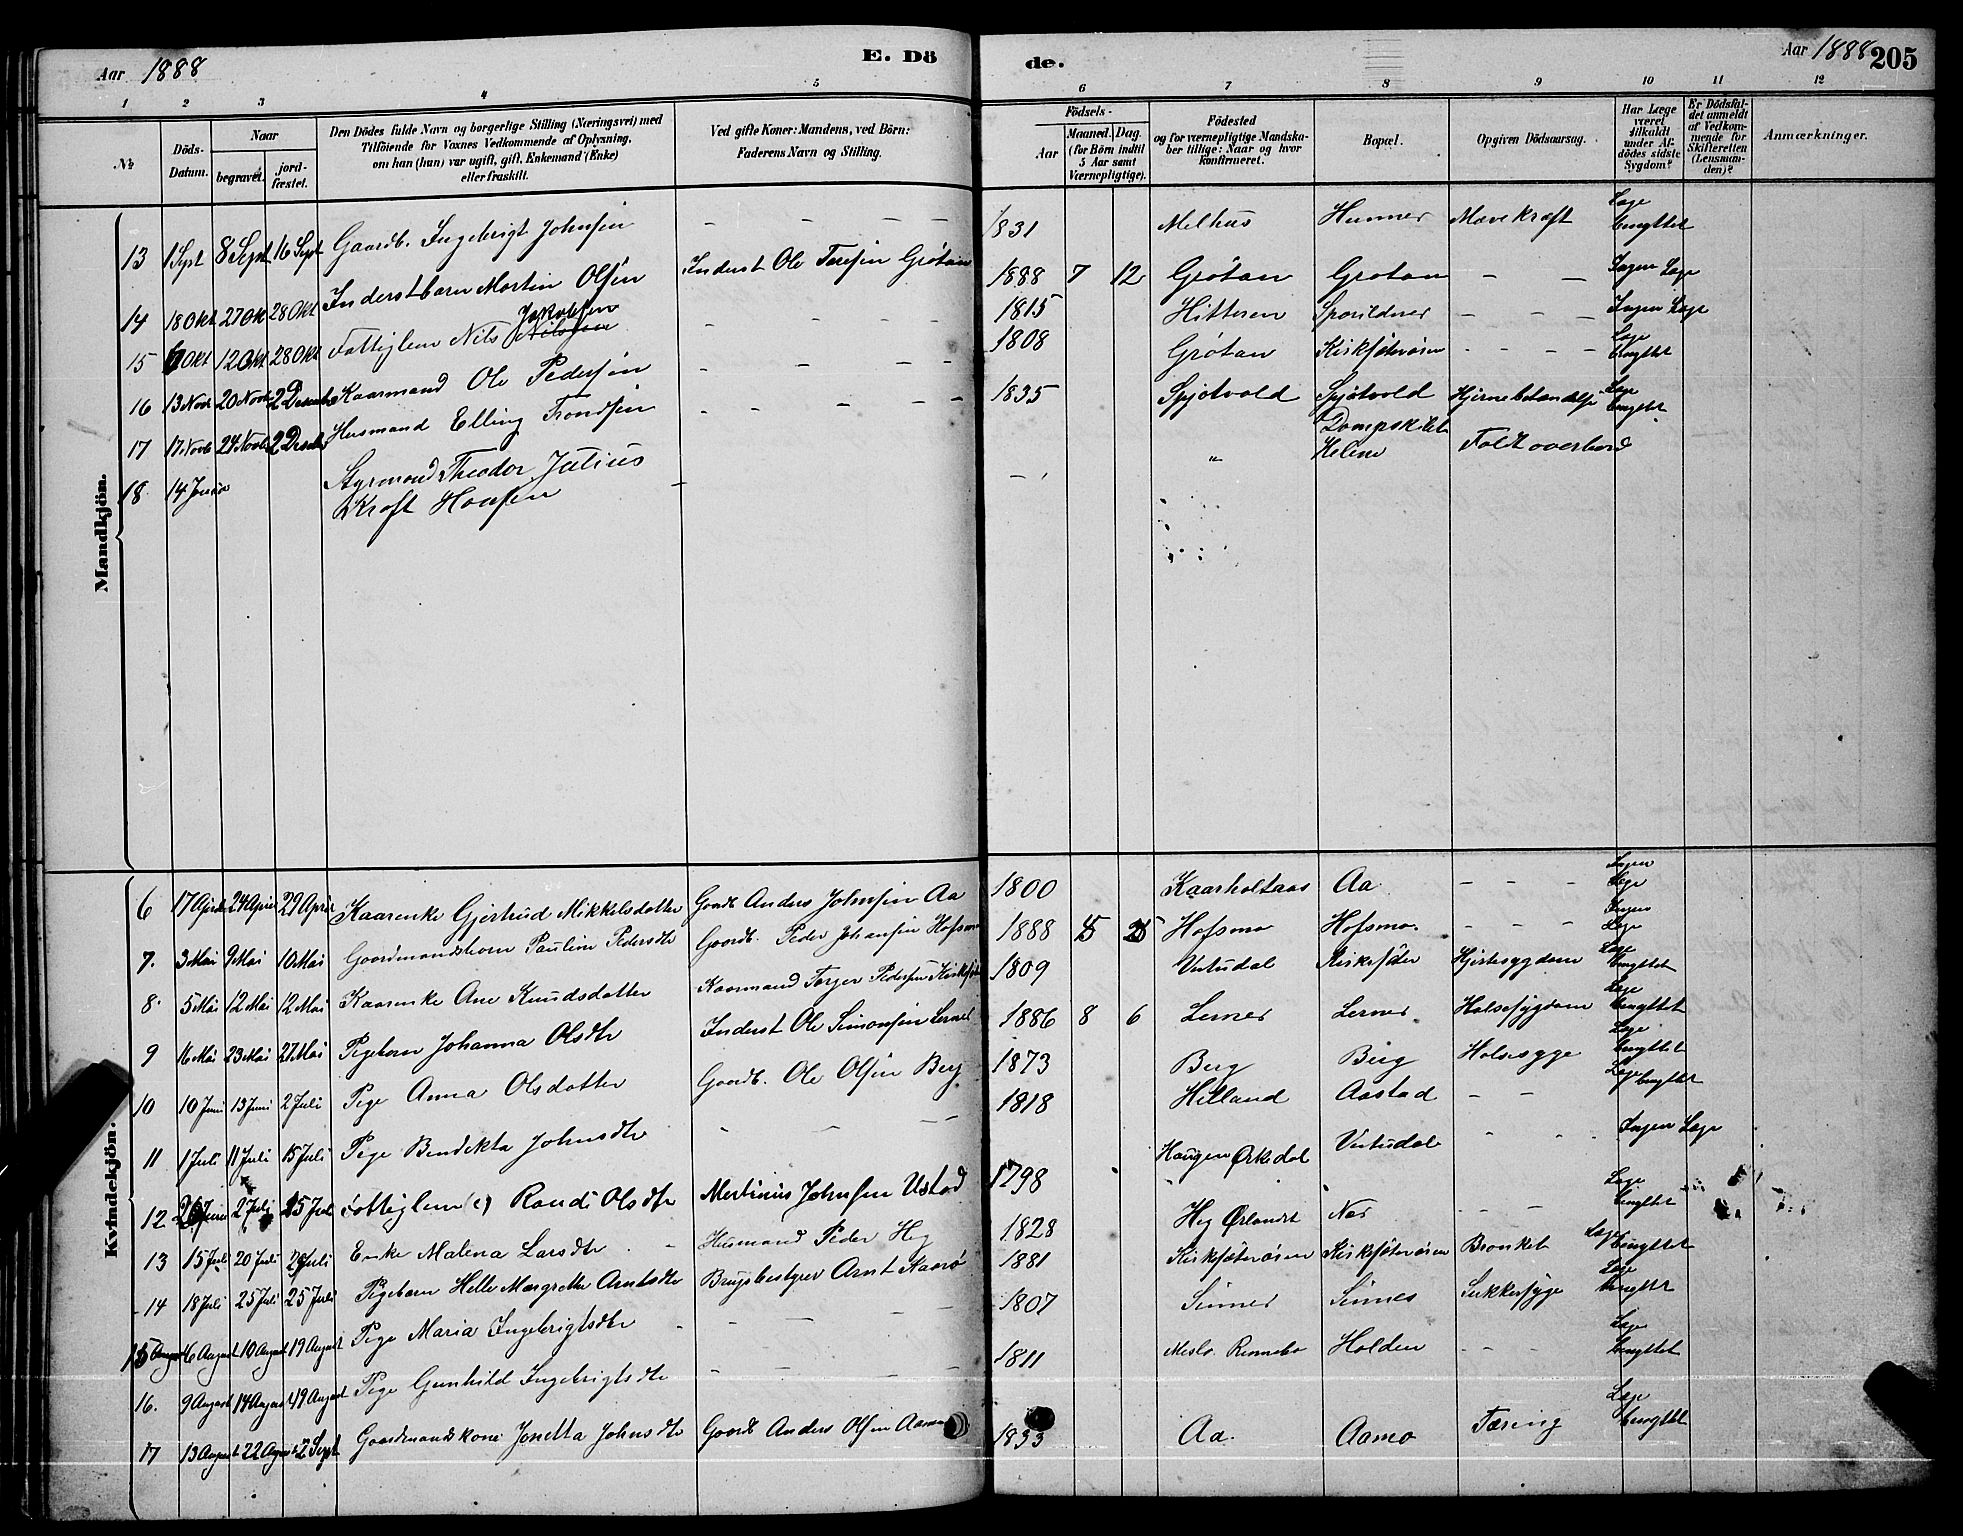 Aar 1888
E. Dö
de.
Aar 1888 205
1 2 3 4 5 6 7 8 9 10 11 12
No
Döds-
Datum.
Naar
begravet.
jord-
fæstet.
Den Dödes fulde Navn og borgerlige Stilling (Næringsvei) med
Tilföiende for Voxnes Vedkommende af Oplysning,
om han (hun) var ugift, gift, Enkemand (Enke)
eller fraskilt.
Ved gifte Koner: Mandens, ved Börn:
Faderens Navn og Stilling.
Födsels-
Aar
Maaned. Dag.
(for Börn indtil
5 Aar samt
Værnepligtige).
Födested
og for værnepligtige Mandska-
ber tillige: Naar og hvor
konfirmeret.
Bopæl.
Opgiven Dödsaarsag.
Har Læge
været
tilkaldt
under Af-
dödes sidste
Sygdom?
Er Dödsfal-
det anmeldt
af Vedkom-
mende for
Skifteretten
(Lensman-
den)?
Anmærkninger.
Mandkjön.
13 1 Sept 8 Sept 16 Sept Gaardb. Ingebrigt Johnsen — — — — 1831 Melhus Hunner Mavekræft Læge benyttet
14 18 Okt 27 Okt 28 Okt Inderstbarn Martin Olsen Inderst Ole Toresen Grötan 1888 7 12 Grötan Grotan — — Ingen Læge
15 6 Okt 12 Okt 28 Okt Fattiglem Nils Nilssen Jakobsen — — — — 1815 Hitteren Sporildnes — — — Ingen Læge
16 13 Novb 20 Novb 2 Desember Kaarmand Ole Pedersen — — — — 1808 Grötan Kirksæterören — — — — Læge benyttet
17 17 Novb 24 Novb 2 Desember Husmand Elling Trondsen — — — — — 1835 Spjötvold Spjötvold Hjernebetændelse Læge benyttet
18 14 Januar Styrmand Theodor Julius
Kraft Hansen — — " Dampskibet
Helene Faldt overbord
Kvindekjön.
6 17 April 24 April 29 April Kaarenke Gjertrud Mikkelsdotter Gaardb Anders Johnsen Aa 1800 Kaarholtaas Aa — — — Ingen Læge
7. 3 Mai 9 Mai 10 Mai Gaardmandsbarn Pauline Pedersdtr Gaardb. Peder Johansen Hofsmo 1888 5 25 Hofsmo Hofsmo. — — — Ingen Læge
8 5 Mai 12 Mai 12 Mai Kaarenke Ane Knudsdatter Kaarmand Torger Pedersen Kirksæter 1809 Vutudal Kirksæter Hjertesygdom Læge benyttet
9 16 Mai 23 Mai 27 Mai Pigebarn Johanna Olsdtr Inderst Ole Simonsen Lernes 1886 8 6 Lernes Lernes Halssygdom Læge benyttet
10 10 Juni 13 Juni 2 Juli Pige Anna Olsdatter Gaardb. Ole Olsen Berg 1873 Berg Berg Halssyge Læge benyttet
11 1 Juli 11 Juli 15 Juli Pige Bendikta Johnsdtr — — — — 1818 Helland Aastad — — Læge benyttet
12 Juni 2 Juli 15 Juli Fattiglem (e) Randi Olsdtr Mertinius Johnsen Ustad 1798 Haugen Ørkedal Vutudal — — Ingen Læge
13 15 Juli 20 Juli Juli Enke Malena Larsdtr Husmand Peder Heg 1828 Heg Ørlandt Næs — — Læge benyttet
14 18 Juli 25 Juli 25 Juli Pigebarn Helle Margrethe Arntsdtr Brugsbestyrer Arnt Kaarö 1881 Kirksæterören Kirksæterören Bronket Læge benyttet
15 6 August 10 August 19 August Pige Maria Ingebrigtsdtr — — — — 1807 Sinnes Sinnes Sukkersyge Læge benyttet
16. 9 August 14 August 19 August Pige Gunhild Ingebrigtsdtr — — — 1811 Meslo. Rennebo Holden — — Læge benyttet
17 13 August 22 August 2 Sept Gaardmandskone Jonetta Johnsdtr Gaardb Anders Olsen Aamo 1833 Aa. Aamo Tæring Læge benyttet